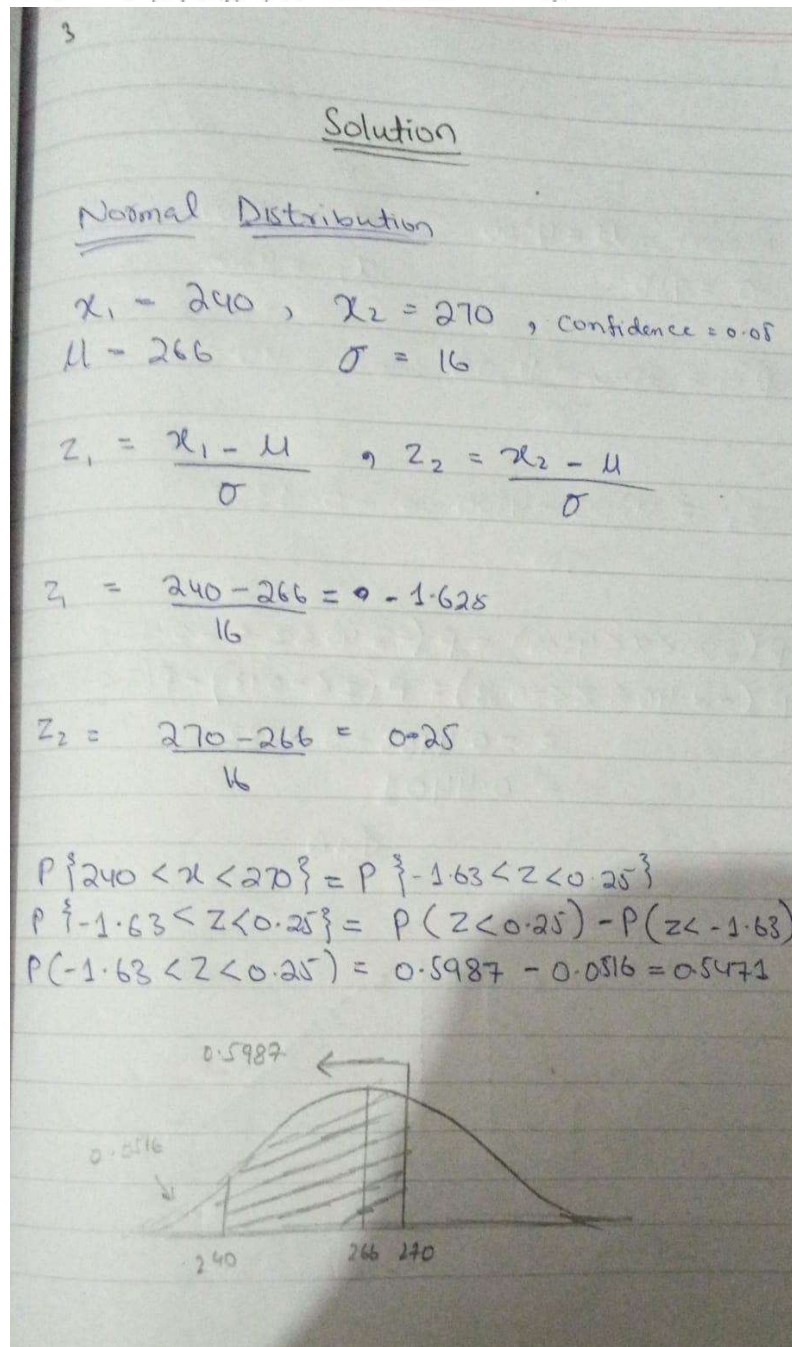 3
Solution
Normal Distribution
x₁ - 240 , x₂ = 270 , confidence = 0.05
μ - 266 σ = 16
z₁ = x₁ - μ / σ , z₂ = x₂ - μ / σ
z₁ = 240 - 266 / 16 = - 1.625
z₂ = 270 - 266 / 16 = 0.25
P{240 < x < 270} = P{-1.63 < z < 0.25}
P{-1.63 < Z < 0.25} = P(Z < 0.25) - P(z < -1.63)
P(-1.63 < Z < 0.25) = 0.5987 - 0.0516 = 0.5471
0.5987
0.0516
240 266 270